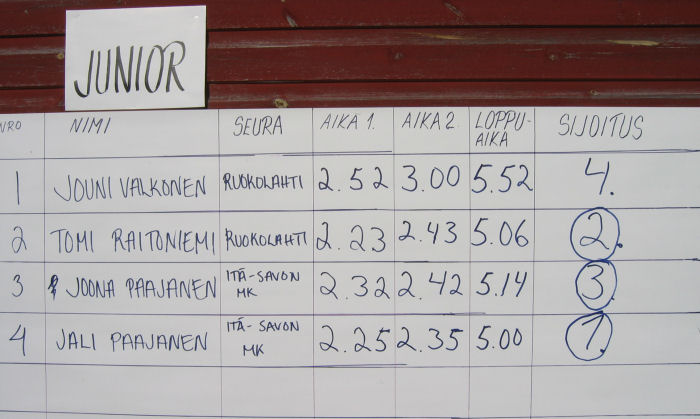 JUNIOR
NRO NIMI SEURA AIKA 1. AIKA 2. LOPPU-AIKA SIJOITUS
1 JOUNI VALKONEN RUOKOLAHTI 2.52 3.00 5.52 4.
2 TOMI RAITONIEMI RUOKOLAHTI 2.23 2.43 5.06 2.
3 JOONA PAAJANEN ITÄ-SAVON MK 2.32 2.42 5.14 3.
4 JALI PAAJANEN ITÄ-SAVON MK 2.25 2.35 5.00 1.